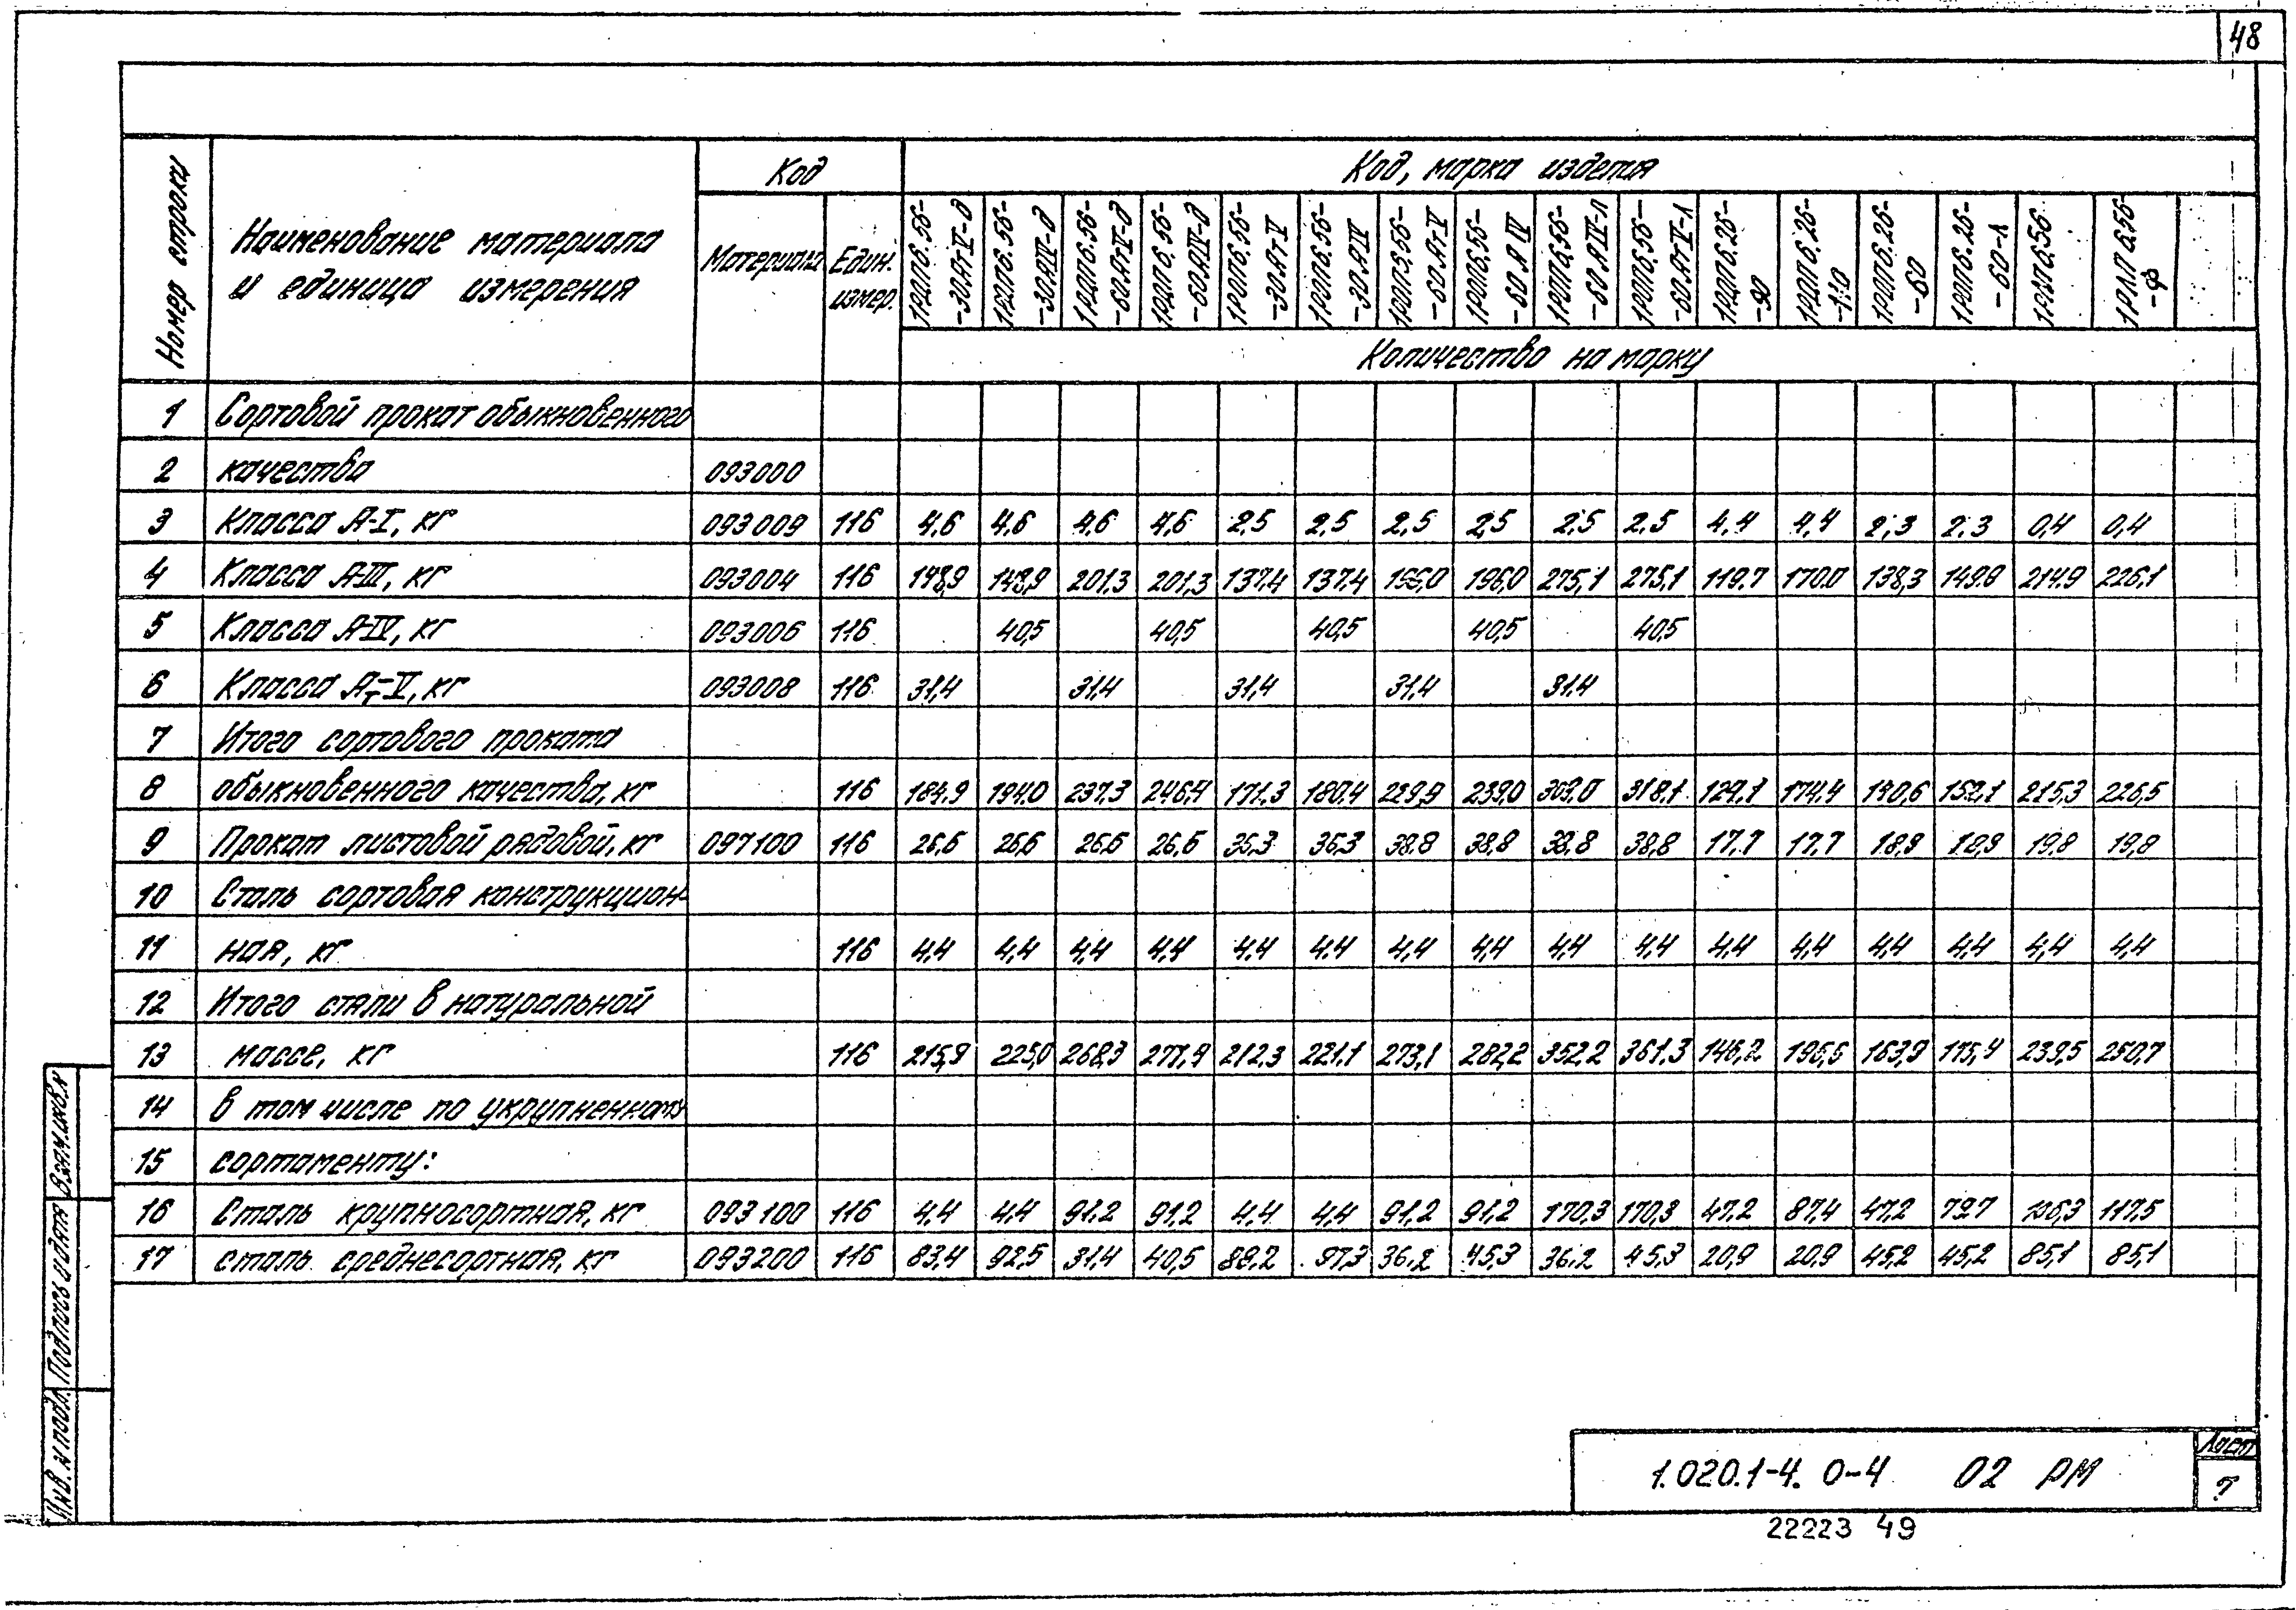 48
Номер строки
Наименование материала и единица измерения
Код
Код, марка изделия
Материала
Един. измер.
1РДП6.56-30АтV-д
1РДП6.56-30АIV-д
1РДП6.56-60АтV-д
1РДП6.56-60АIV-д
1РОП6.56-30АтV
1РОП6.56-30АIV
1РОП6.56-60АтV
1РОП6.56-60АIV
1РОП6.56-60АIV-л
1РОП6.56-60АтV-л
1РДП6.26-90
1РДП6.26-110
1РОП6.26-60
1РОП6.26-60-л
1РЛП6.56
1РЛП6.56-ф
Количество на марку
1 Сортовой прокат обыкновенного
2 качества 093000
3 Класса А-I, кг 093009 116 4,6 4,6 4,6 4,6 2,5 2,5 2,5 2,5 2,5 2,5 4,4 4,4 2,3 2,3 0,4 0,4
4 Класса А-III, кг 093004 116 148,9 148,9 201,3 201,3 137,4 137,4 196,0 196,0 275,1 275,1 119,7 170,0 138,3 149,8 214,9 226,1
5 Класса А-IV, кг 093006 116 40,5 40,5 40,5 40,5 40,5
6 Класса Ат-V, кг 093008 116 31,4 31,4 31,4 31,4 31,4
7 Итого сортового проката
8 обыкновенного качества, кг 116 184,9 194,0 237,3 246,4 171,3 180,4 229,9 239,0 309,0 318,1 124,1 174,4 140,6 152,1 215,3 226,5
9 Прокат листовой рядовой, кг 097100 116 26,6 26,6 26,6 26,6 36,3 36,3 38,8 38,8 38,8 38,8 17,7 17,7 18,9 18,9 19,8 19,8
10 Сталь сортовая конструкцион-
11 ная, кг 116 4,4 4,4 4,4 4,4 4,4 4,4 4,4 4,4 4,4 4,4 4,4 4,4 4,4 4,4 4,4 4,4
12 Итого стали в натуральной
13 массе, кг 116 215,9 225,0 268,3 277,4 212,3 221,1 273,1 282,2 352,2 361,3 146,2 196,5 163,9 175,4 239,5 250,7
14 в том числе по укрупненному
15 сортаменту:
16 Сталь крупносортная, кг 093100 116 4,4 4,4 91,2 91,2 4,4 4,4 91,2 91,2 170,3 170,3 47,2 87,4 47,2 79,7 106,3 117,5
17 сталь среднесортная, кг 093200 116 83,4 92,5 31,4 40,5 88,2 97,3 36,2 45,3 36,2 45,3 20,9 20,9 45,2 45,2 85,1 85,1
Взам.инв.№
Подпись и дата
Инв. № подл.
1.020.1-4. 0-4 02 РМ
Лист
7
22223 49